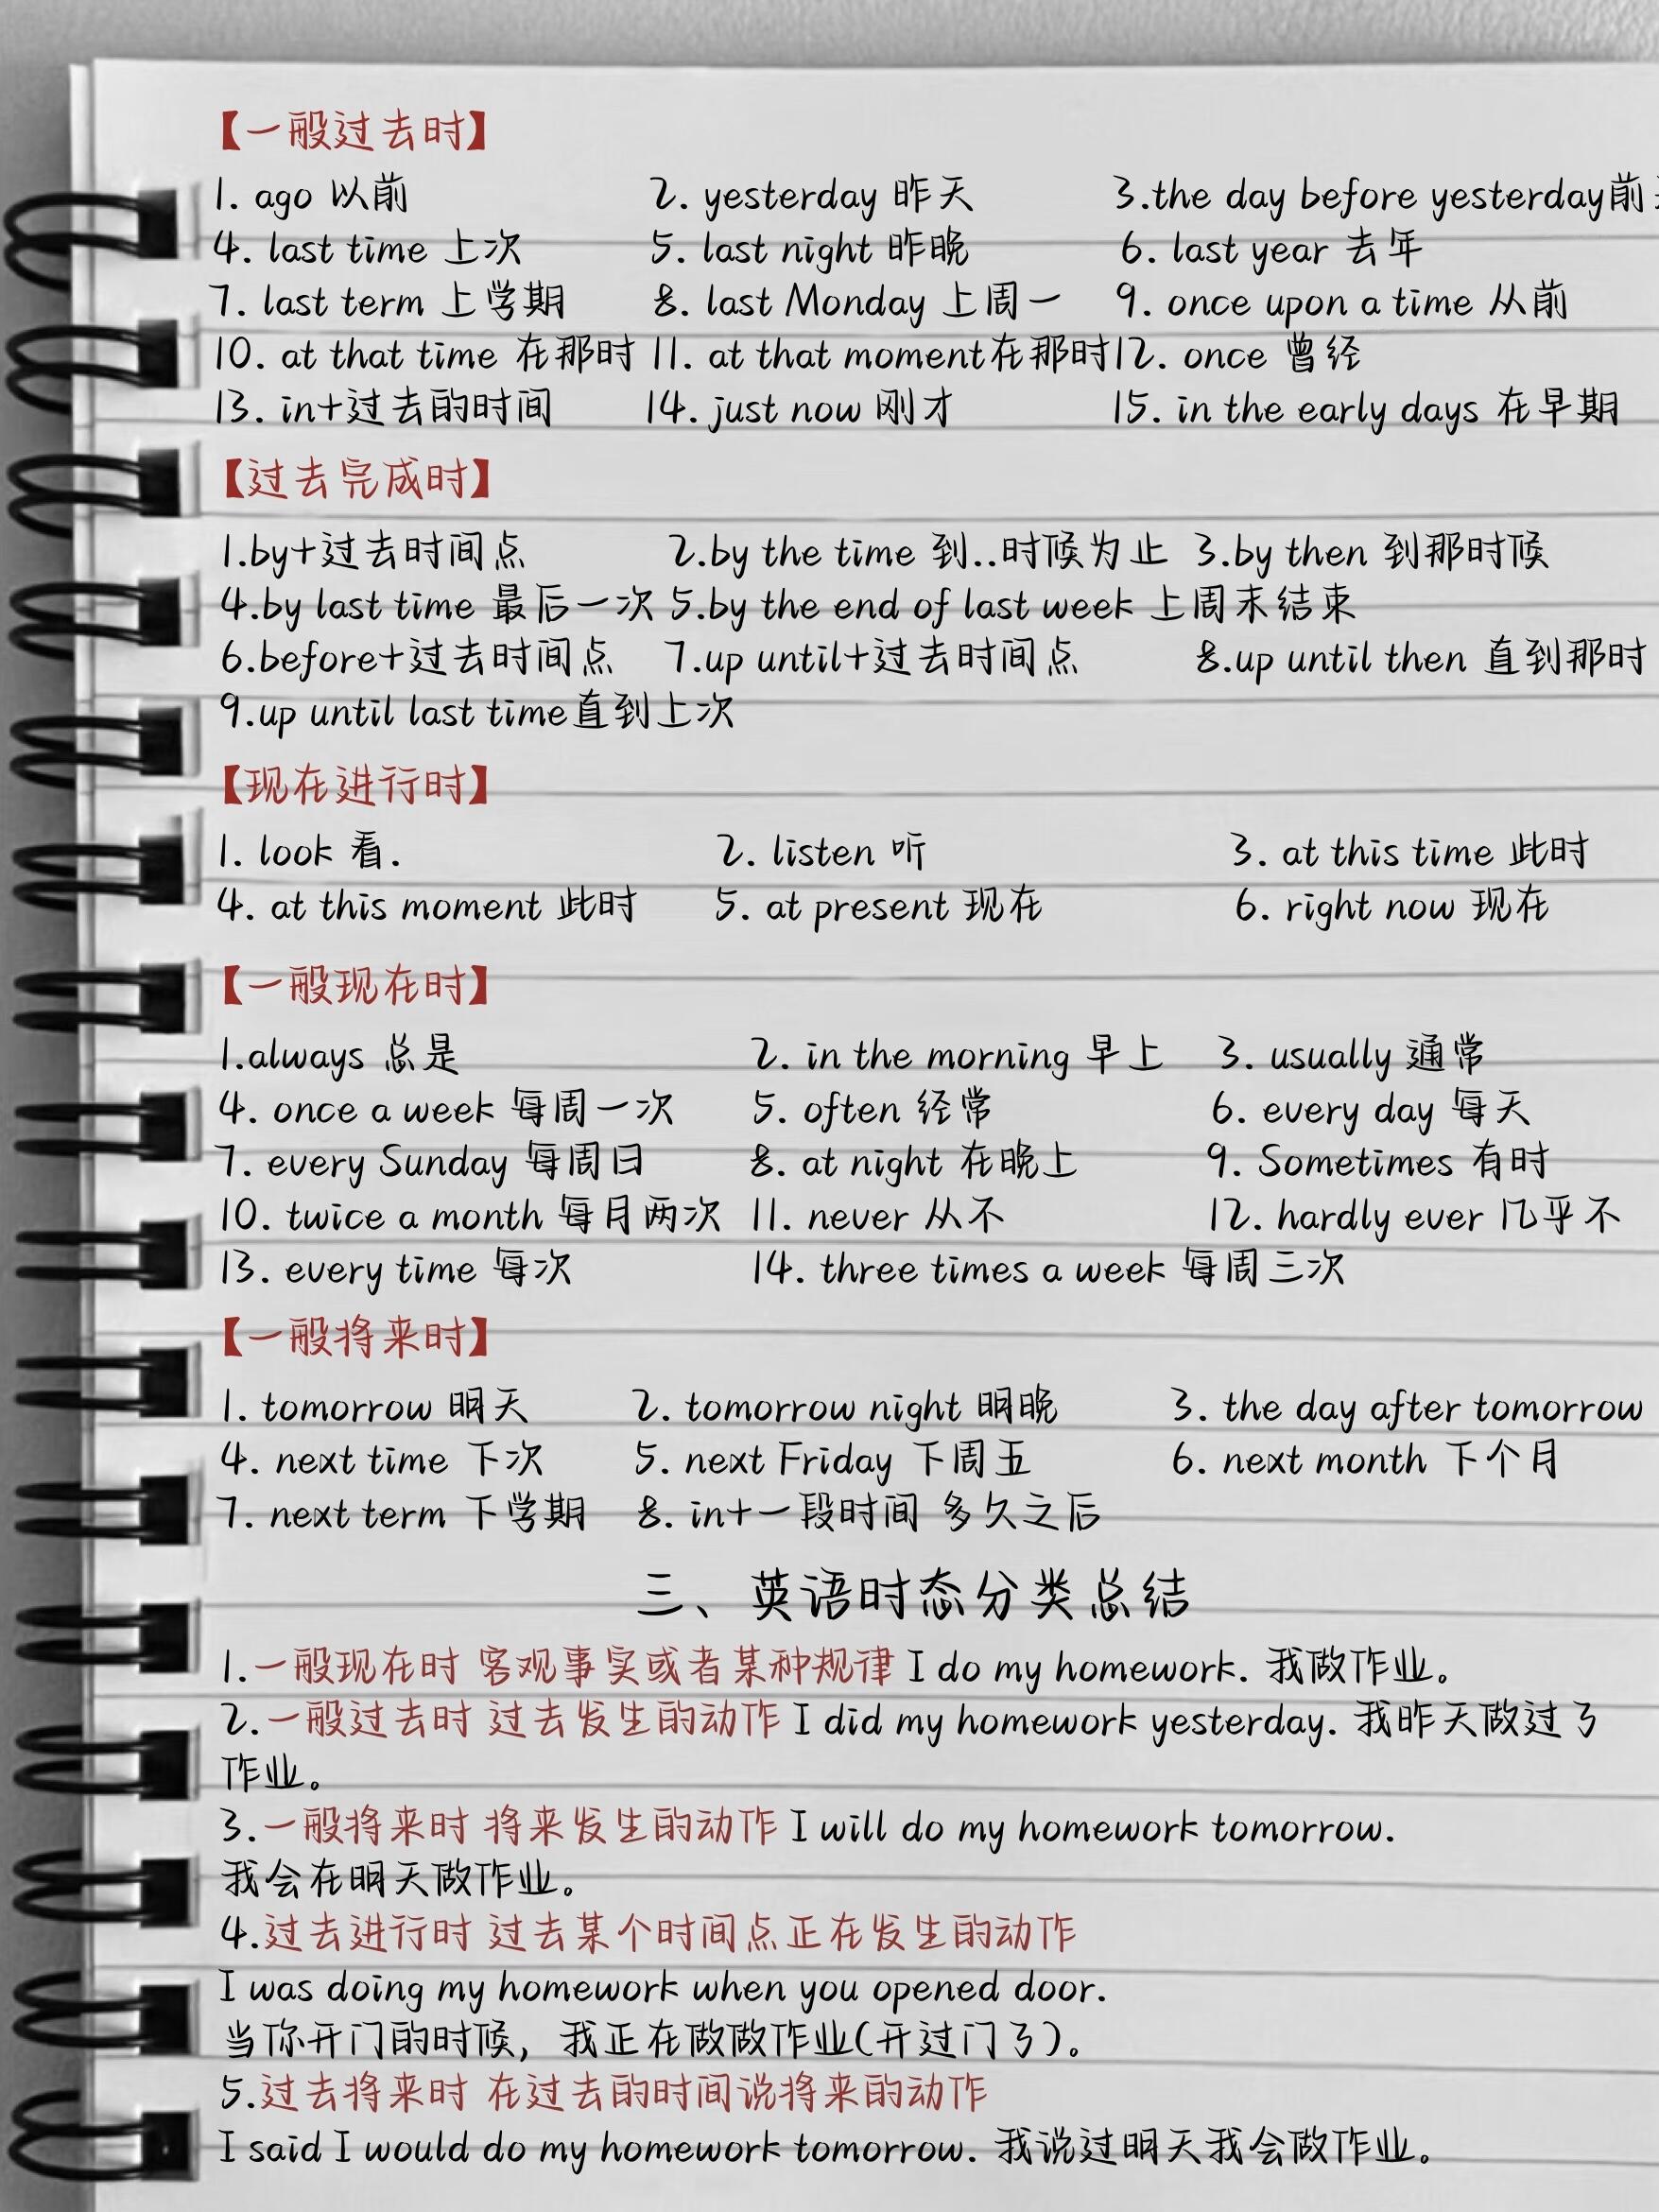 【一般过去时】
1. ago 以前 2. yesterday 昨天 3.the day before yesterday前
4. last time 上次 5. last night 昨晚 6. last year 去年
7. last term 上学期 8. last Monday 上周一 9. once upon a time 从前
10. at that time 在那时 11. at that moment在那时12. once 曾经
13. in+过去的时间 14. just now 刚才 15. in the early days 在早期
【过去完成时】
1.by+过去时间点 2.by the time 到..时候为止 3.by then 到那时候
4.by last time 最后一次 5.by the end of last week 上周末结束
6.before+过去时间点 7.up until+过去时间点 8.up until then 直到那时
9.up until last time直到上次
【现在进行时】
1. look 看. 2. listen 听 3. at this time 此时
4. at this moment 此时 5. at present 现在 6. right now 现在
【一般现在时】
1.always 总是 2. in the morning 早上 3. usually 通常
4. once a week 每周一次 5. often 经常 6. every day 每天
7. every Sunday 每周日 8. at night 在晚上 9. Sometimes 有时
10. twice a month 每月两次 11. never 从不 12. hardly ever 几乎不
13. every time 每次 14. three times a week 每周三次
【一般将来时】
1. tomorrow 明天 2. tomorrow night 明晚 3. the day after tomorrow
4. next time 下次 5. next Friday 下周五 6. next month 下个月
7. next term 下学期 8. in+一段时间 多久之后
三、英语时态分类总结
1.一般现在时 客观事实或者某种规律 I do my homework. 我做作业。
2.一般过去时 过去发生的动作 I did my homework yesterday. 我昨天做过了
作业。
3.一般将来时 将来发生的动作 I will do my homework tomorrow.
我会在明天做作业。
4.过去进行时 过去某个时间点正在发生的动作
I was doing my homework when you opened door.
当你开门的时候，我正在做做作业(开过门了)。
5.过去将来时 在过去的时间说将来的动作
I said I would do my homework tomorrow. 我说过明天我会做作业。